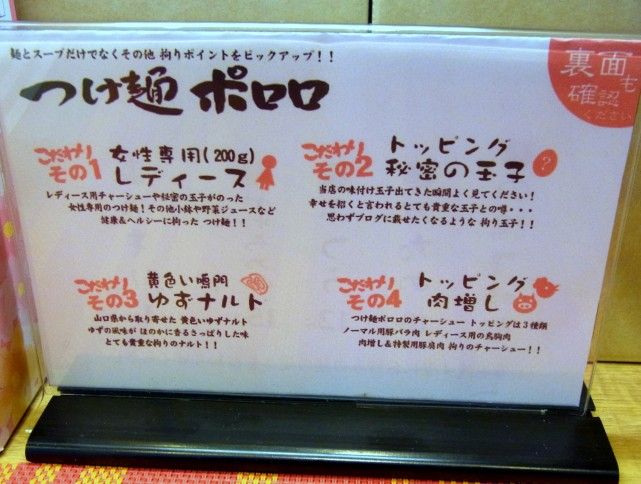 麺とスープだけでなくその他 拘りポイントをピックアップ！！
つけ麺 ポロロ
裏面も
確認
ください
こだわり
その1
女性専用(200g)
レディース
レディース用チャーシューや秘密の玉子がのった
女性専用のつけ麺！その他小鉢や野菜ジュースなど
健康&ヘルシーに拘った つけ麺！！
こだわり
その2
トッピング
秘密の玉子
?
当店の味付け玉子出てきた瞬間よく見てください！
幸せを招くと言われるとても貴重な玉子との噂・・・
思わずブログに載せたくなるような 拘り玉子！！
こだわり
その3
黄色い鳴門
ゆずナルト
山口県から取り寄せた 黄色いゆずナルト
ゆずの風味が ほのかに香るさっぱりした味
とても貴重な拘りのナルト！！
こだわり
その4
トッピング
肉増し
つけ麺ポロロのチャーシュー トッピングは3種類
ノーマル用豚バラ肉 レディース用の鳥胸肉
肉増し&特製用豚肩肉 拘りのチャーシュー！！